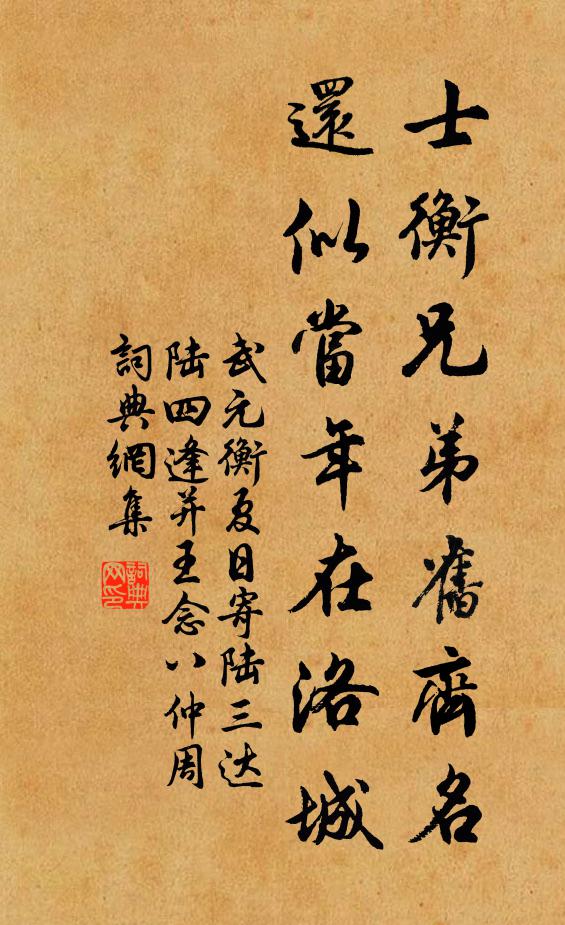 士衡兄弟舊齊名
還似當年在洛城
武元衡夏日寄陸三达
陆四逢并王念八仲周
詞典網集
詞典网印